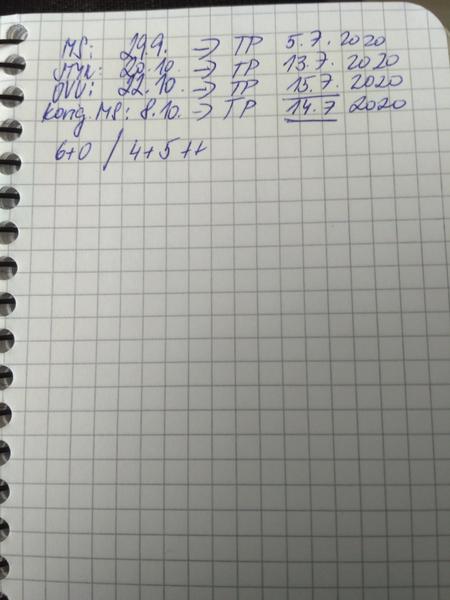 MS: 29.9. -> TP 5.7.2020
20.10. -> TP 13.7.2020
OVU: 22.10. -> TP 15.7.2020
MS: 8.10. -> TP 14.7 2020
6+0 / 4+5 ++